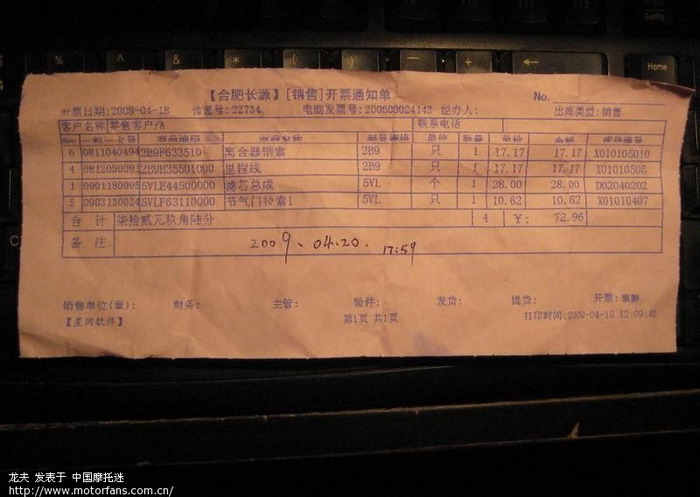 【合肥长源】[销售]开票通知单 No.
开票日期:2009-04-18 传递号:22734. 电脑发票号:200600024143 经办人: 出库类型:销售
客户名称 零售客户/A 联系电话
一料一卡号 商品编码 商品名称 型号规格 单位 数量 单价 金额 库位编号
6 0811040494 2B9F633510 离合器钢索 2B9 只 1 17.17 17.17 X010105010
4 0812050091 2B9H35501000 里程线 2B9 只 1 17.17 17.17 X010106506
1 0901180095 5VLE44500000 滤芯总成 5VL 个 1 28.00 28.00 D02040202
5 0903130024 5VLF63110000 节气门拉索1 5VL 只 1 10.62 10.62 X01010407
合 计 柒拾贰元玖角陆分 4 ¥: 72.96
备 注 2009、04.20. 17:59
销售单位(章): 财务: 主管: 验件: 发货: 提货: 开票:
【星网软件】 第1页 共1页 打印时间:2009-04-18 12:09:48
龙夫 发表于 中国摩托迷
http://www.motorfans.com.cn/